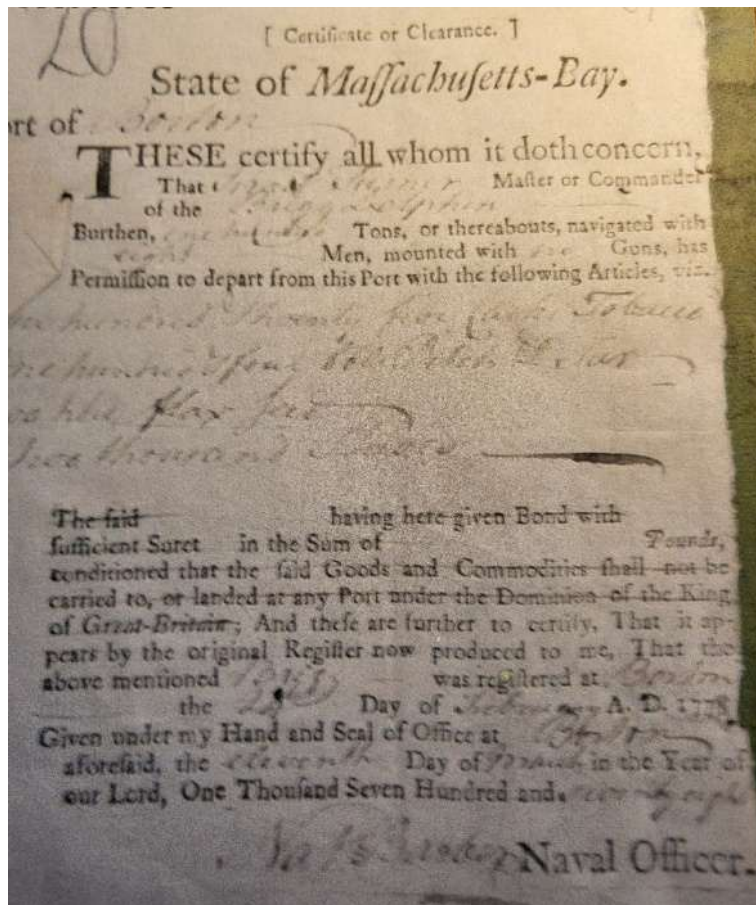 20
[ Certificate or Clearance. ]
State of Maſſachuſetts-Bay.
ort of Boston
THESE certify all whom it doth concern,
That Turner Maſter or Commander
of the Brigg Dolphin
Burthen, one hundred Tons, or thereabouts, navigated with
eight Men, mounted with Guns, has
Permiſſion to depart from this Port with the following Articles, viz.
hundred & twenty five Tobacco
one hundred & four bbls Pitch & Tar
flax seed
Two thousand Staves
The ſaid having here given Bond with
ſufficient Suret in the Sum of Pounds,
conditioned that the ſaid Goods and Commodities ſhall not be
carried to, or landed at any Port under the Dominion of the King
of Great-Britain; And theſe are further to certify, That it ap-
pears by the original Regiſter now produced to me, That the
above mentioned Brigg was regiſtered at Boston
the 24 Day of February A. D. 1778
Given under my Hand and Seal of Office at Boston
aforeſaid, the eleventh Day of March in the Year of
our Lord, One Thouſand Seven Hundred and seventy eight
Nat Barber Naval Officer.